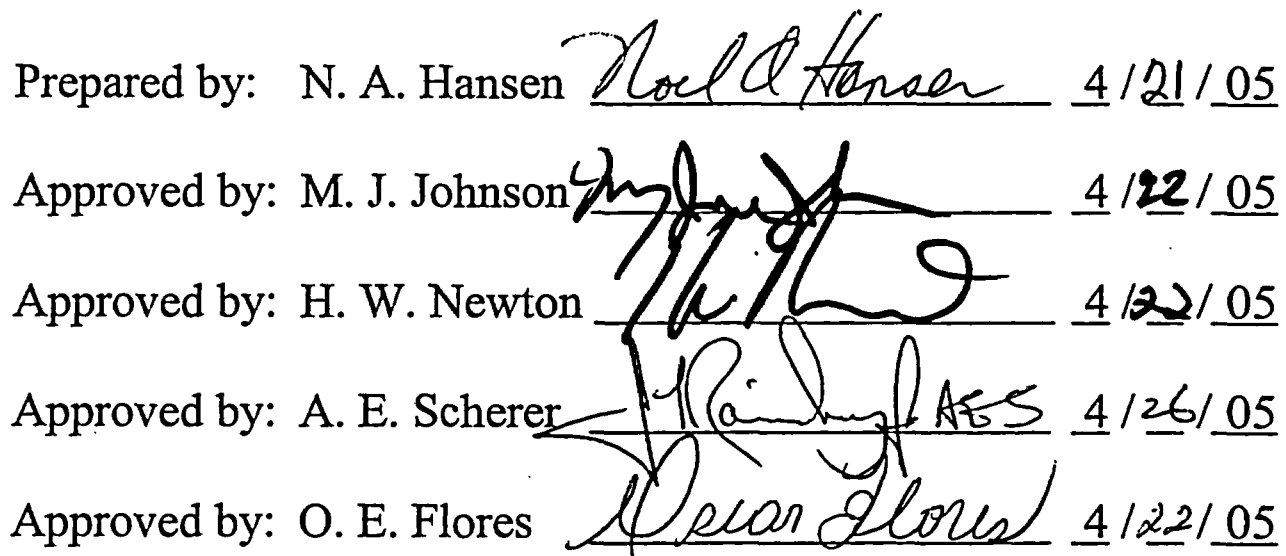 Prepared by: N. A. Hansen Noel A Hansen 4/21/05
Approved by: M. J. Johnson 4/22/05
Approved by: H. W. Newton 4/22/05
Approved by: A. E. Scherer AES 4/26/05
Approved by: O. E. Flores Oscar Flores 4/22/05